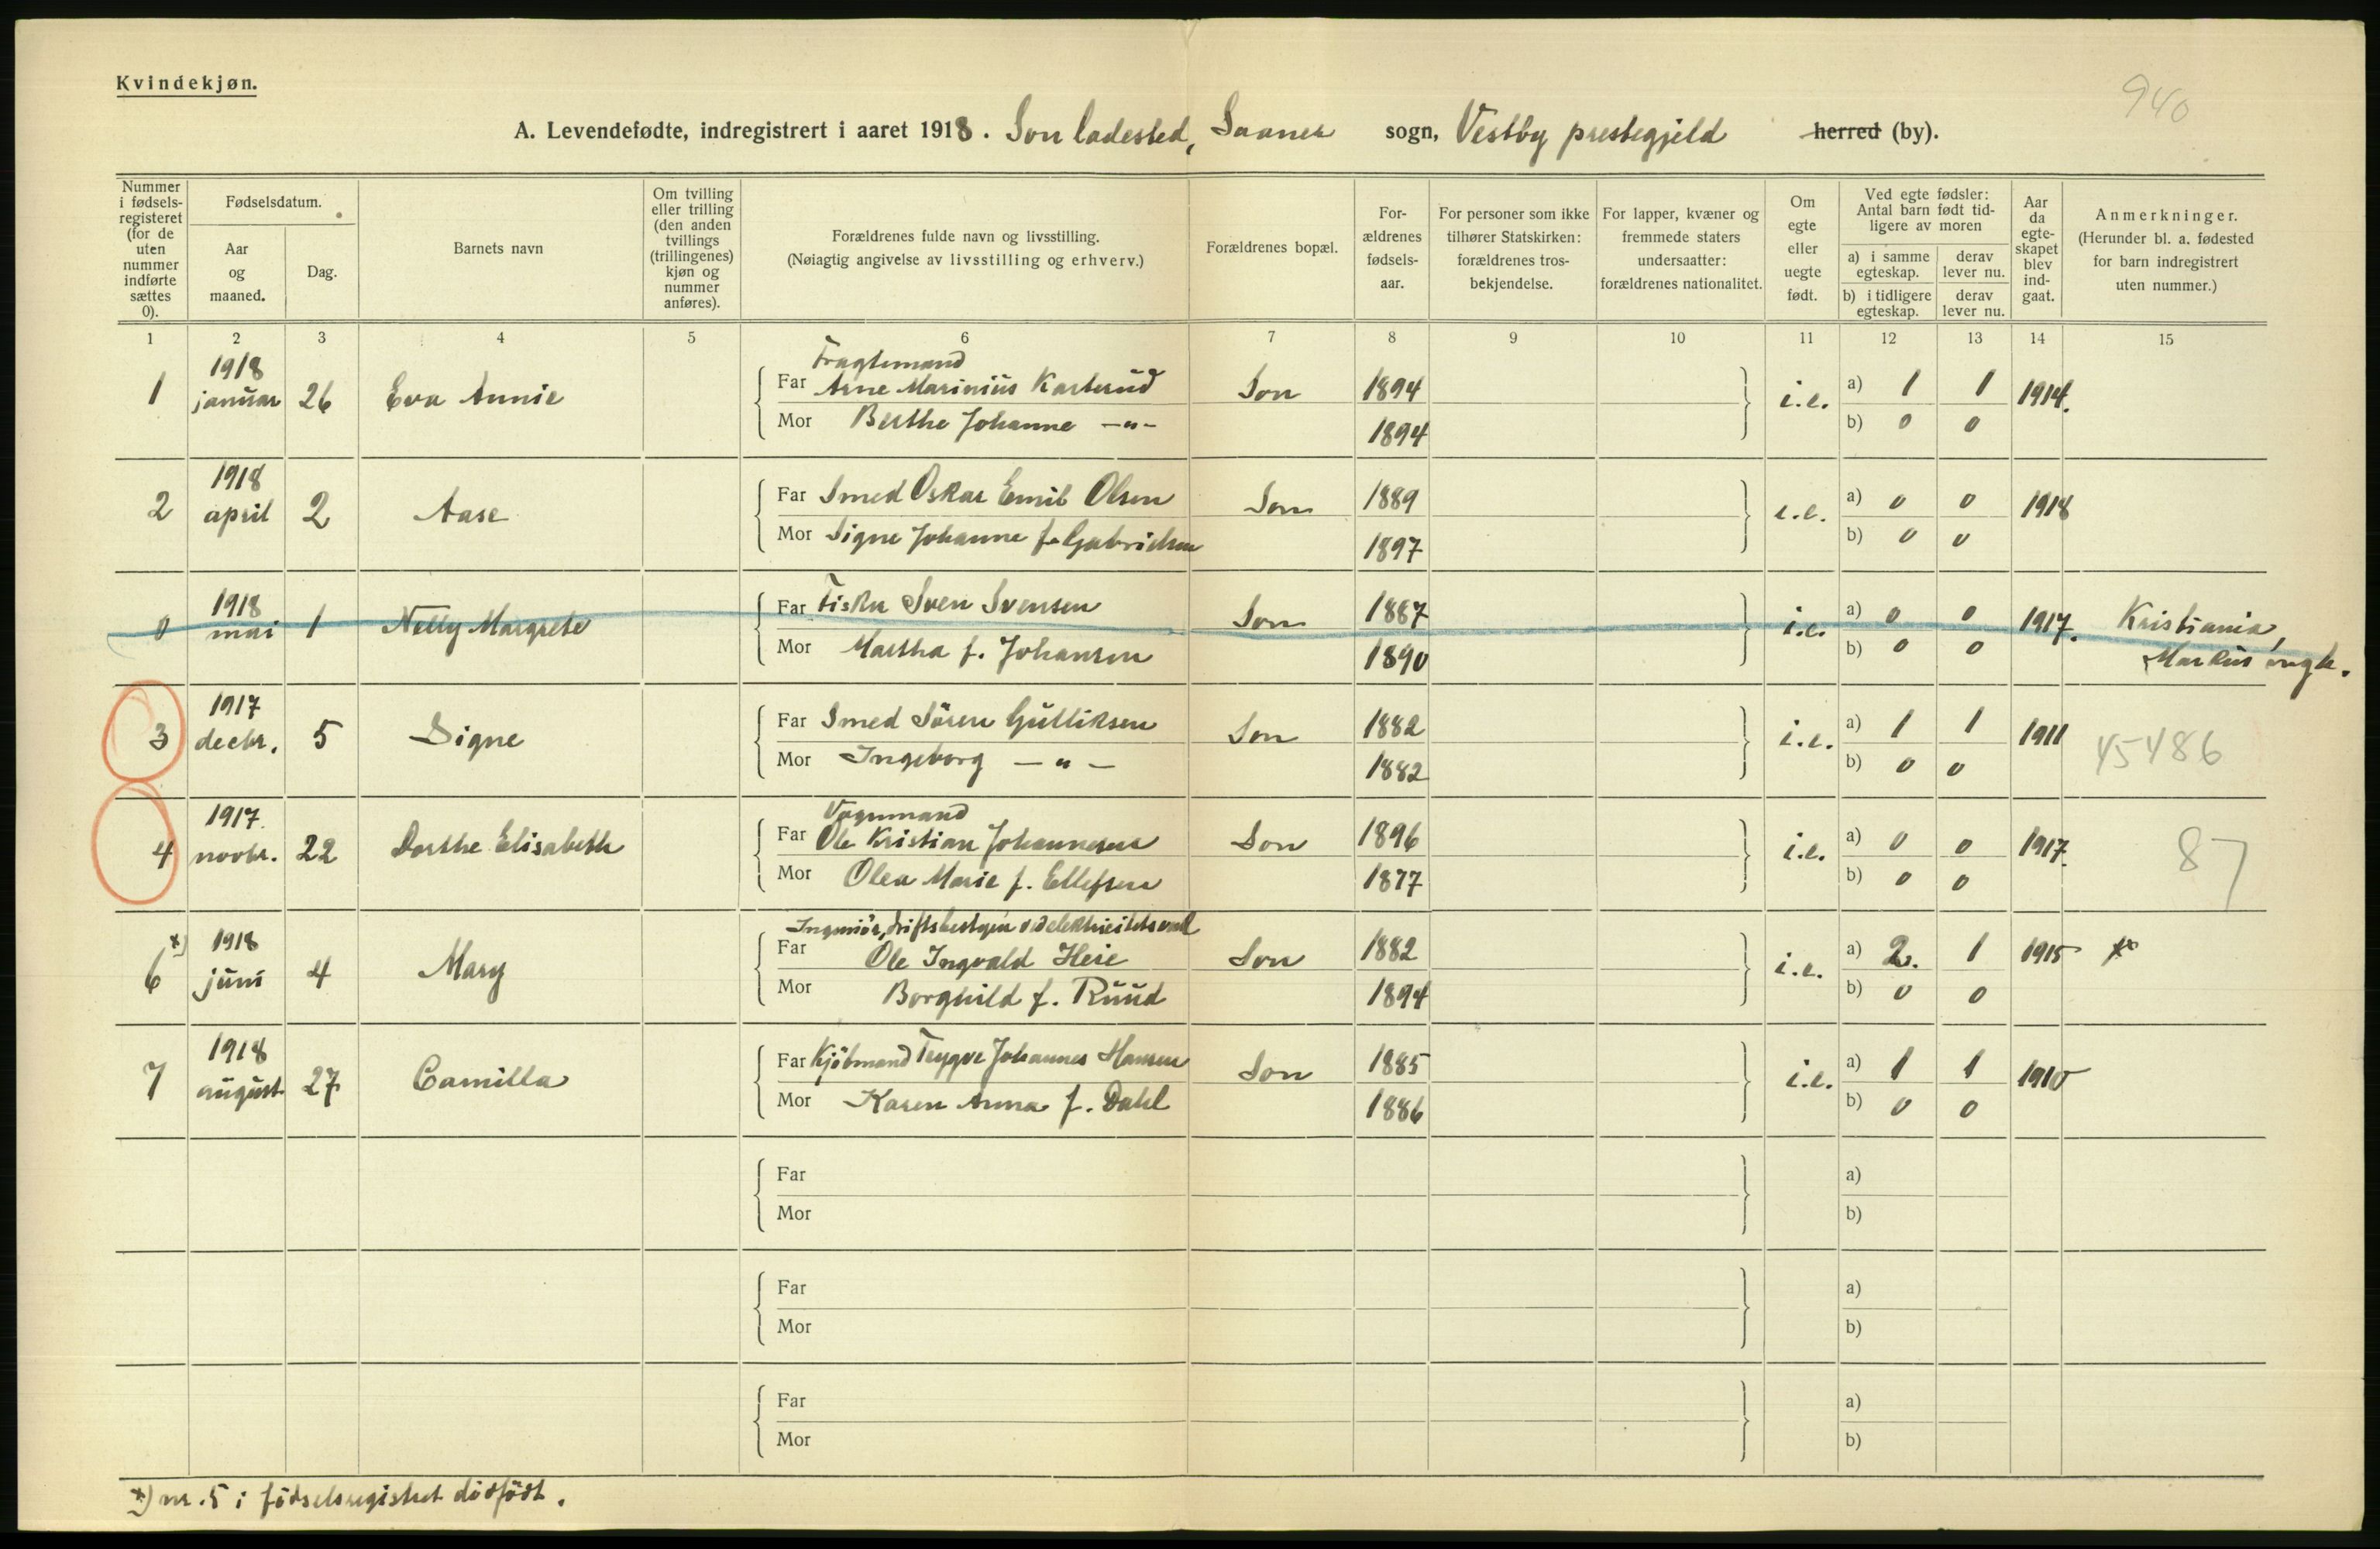 Kvindekjøn.
940
A. Levendefødte, indregistrert i aaret 1918. Son ladested, Saaner sogn, Vestby prestegjeld herred (by).
Nummer i fødsels-registeret (for de uten nummer indførte sættes 0).
Fødselsdatum.
Aar og maaned.
Dag.
Barnets navn
Om tvilling eller trilling (den anden tvillings (trillingenes) kjøn og nummer anføres).
Forældrenes fulde navn og livsstilling.
(Nøiagtig angivelse av livsstilling og erhverv.)
Forældrenes bopæl.
For-ældrenes fødsels-aar.
For personer som ikke tilhører Statskirken: forældrenes tros-bekjendelse.
For lapper, kvæner og fremmede staters undersaatter: forældrenes nationalitet.
Om egte eller uegte født.
Ved egte fødsler: Antal barn født tid-ligere av moren
a) i samme egteskap.
derav lever nu.
b) i tidligere egteskap.
derav lever nu.
Aar da egte-skapet blev ind-gaat.
Anmerkninger.
(Herunder bl. a. fødested for barn indregistrert uten nummer.)
1 2 3 4 5 6 7 8 9 10 11 12 13 14 15
1918 Fragtemand
1 januar 26 Eva Annie Far Arne Marinius Karterud Son 1894 i.e. a) 1 1 1914.
Mor Berthe Johanne —"— 1894 b) 0 0
1918
2 april 2 Aase Far Smed Oskar Emil Olsen Son 1889 i.e. a) 0 0 1918
Mor Signe Johanne f. Gabrielsen 1897 b) 0 0
1918
0 mai 1 Nelly Margrete Far Fisker Sven Svensen Son 1887 i.e. a) 0 0 1917. Kristiania,
Mor Martha f. Johansen 1890 b) 0 0 Markus mgh.
1917
3 decbr. 5 Signe Far Smed Sören Gulliksen Son 1882 i.e. a) 1 1 1911 45486
Mor Ingeborg —"— 1882 b) 0 0
1917. Vognmand
4 novbr. 22 Dorthe Elisabeth Far Ole Kristian Johannesen Son 1896 i.e. a) 0 0 1917. 87
Mor Olea Marie f. Ellefsen 1877 b) 0 0
*) 1918 Ingeniör, driftsbestyrer ved elektricitetsverk
6 juni 4 Mary Far Ole Ingvald Heie Son 1882 i.e. a) 2. 1 1915
Mor Borghild f. Ruud 1894 b) 0 0
1918
7 august 27 Camilla Far Kjöbmand Trygve Johannes Hansen Son 1885 i.e. a) 1 1 1910
Mor Karen Anna f. Dahl 1886 b) 0 0
Far a)
Mor b)
Far a)
Mor b)
Far a)
Mor b)
*) nr. 5 i födselsregistret dödfödt.